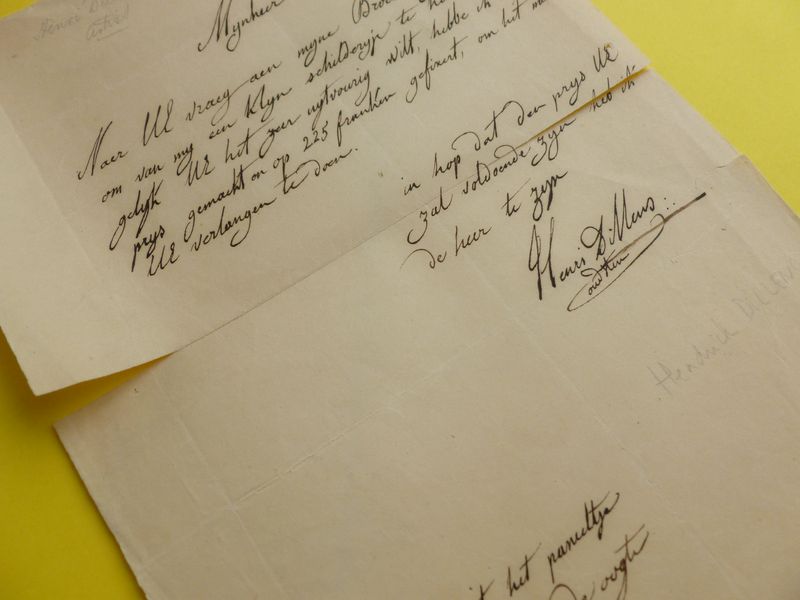 Henri Di
artis
Mynheer
Naer UE vraeg aen myne Broe
om van my een klyn schilderijtje te he
gelyk UE het zeer uytvoerig wilt, hebbe ik
prys gemaekt en op 225 franken gefixert, om het
UE verlangen te doen.
in hop dat den prys UE
zal voldoende zyn heb ik
de heer te zyn
Henri Dillens
Hendrik Dillens
het paneeltje
oogte